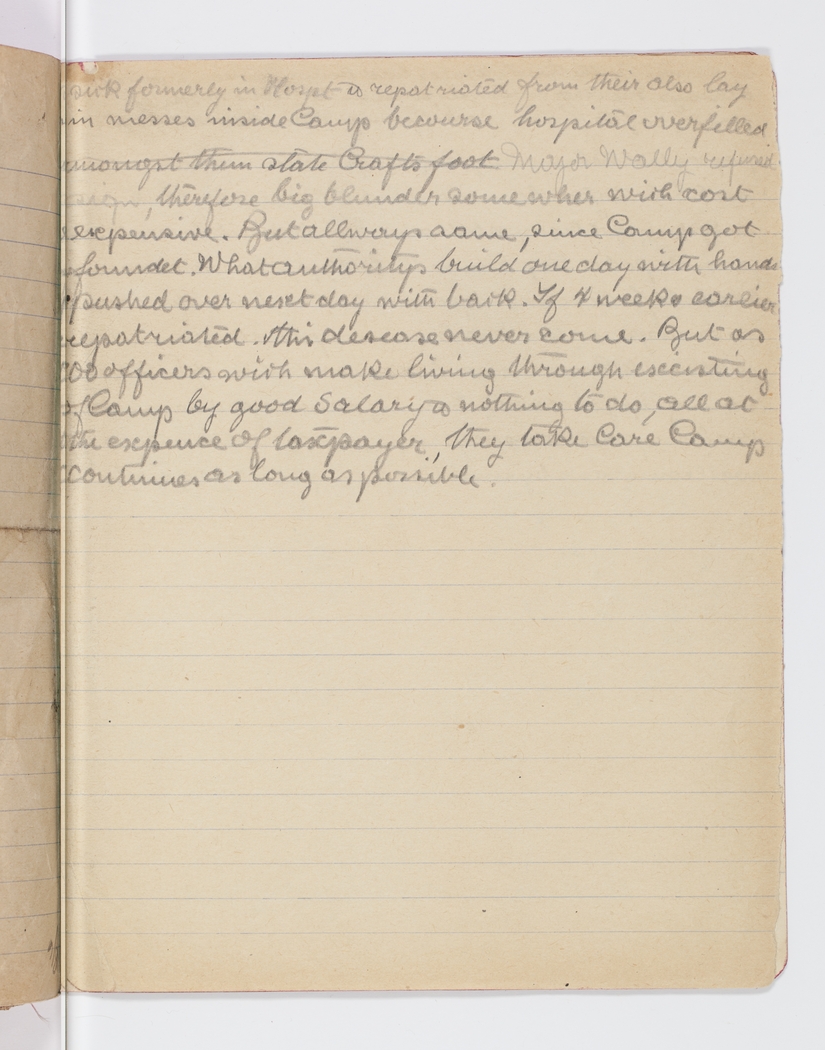 sick formerly in Hospt & repatriated from their also lay
in messes inside Camp becourse hospital overfilled
amongst them state Crafts foot Major Wally refused
sign, therefore big blunder somewher wich cost
expensive. But allways same, since Camp got
foundet. What authoritys build one day with hands
pushed over next day with back. If 4 weeks earlier
repatriated this desease never come. But as
officers wich make living through excisting
of Camp by good Salary & nothing to do, all at
the expence of taxpayer, they take Care Camp
continues as long as possible.